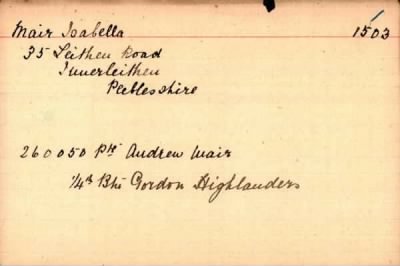 Mair Isabella 1503
35 Leithen Road
Innerleithen
Peeblesshire
260050 Pte Andrew Mair
1/4th Bn Gordon Highlanders